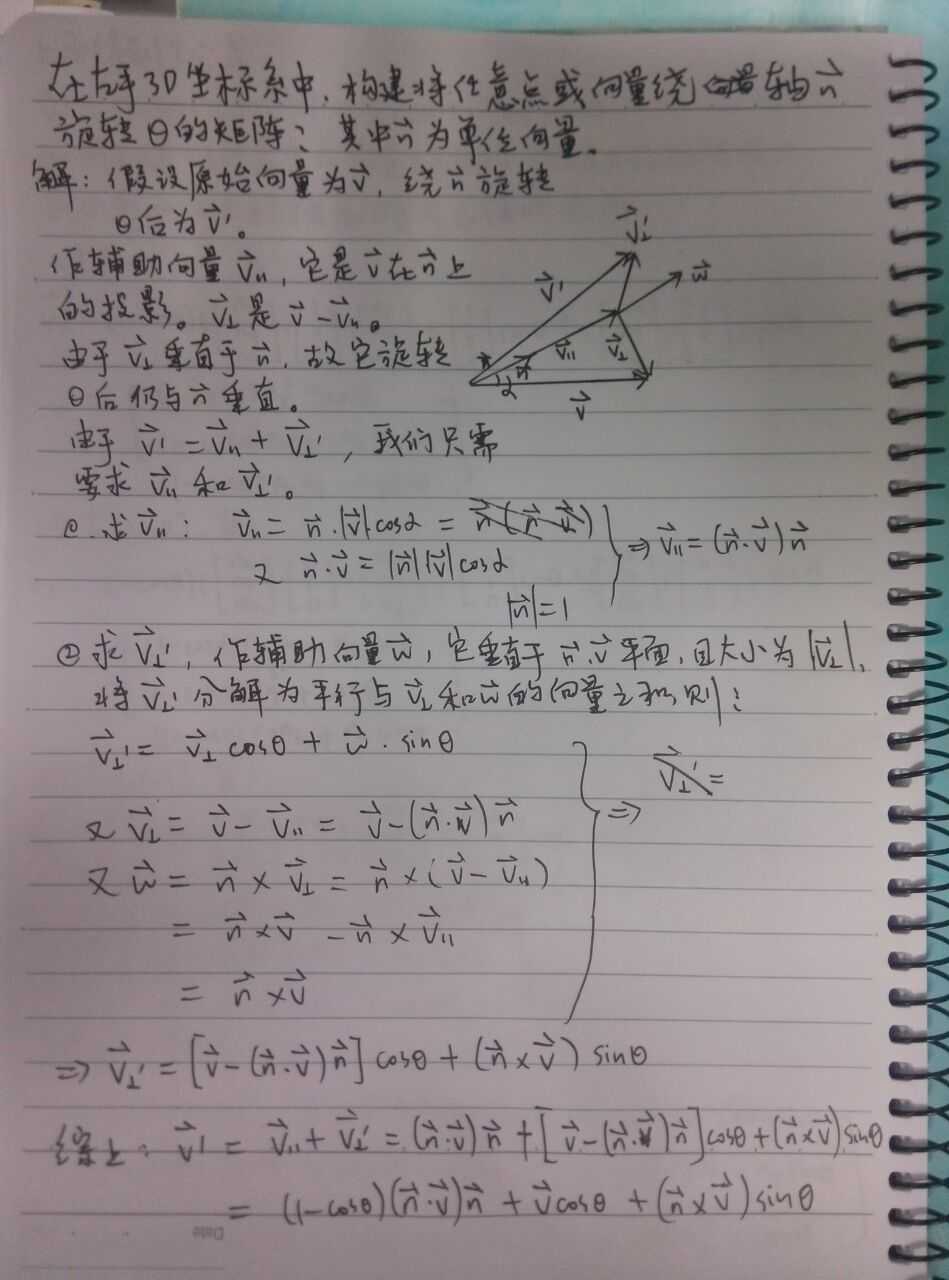 在右手3D坐标系中,构建将任意点或向量绕轴n⃗
旋转θ的矩阵;其中n⃗为单位向量.
解:假设原始向量为v⃗,绕n⃗旋转
θ后为v⃗'。
作辅助向量v⃗∥,它是v⃗在n⃗上
的投影。v⃗⊥是v⃗-v⃗∥。
由于v⃗⊥垂直于n⃗,故它旋转
θ后仍与n⃗垂直。
由于 v⃗' = v⃗∥ + v⃗⊥', 我们只需
要求 v⃗∥ 和 v⃗⊥'。
v⃗⊥'
w⃗
v⃗'
v⃗∥
v⃗⊥
n⃗
α
v⃗
求v⃗∥: v⃗∥ = n⃗·|v⃗|cosα = n⃗(n⃗ v⃗) ⇒ v⃗∥ = (n⃗·v⃗)n⃗
又 n⃗·v⃗ = |n⃗||v⃗|cosα
|n⃗|=1
② 求v⃗⊥', 作辅助向量w⃗, 它垂直于n⃗.v⃗平面,且大小为|v⃗⊥|,
将v⃗⊥'分解为平行与v⃗⊥和w⃗的向量之和,则:
v⃗⊥' = v⃗⊥cosθ + w⃗·sinθ
⇒ v⃗⊥' =
又 v⃗⊥ = v⃗ - v⃗∥ = v⃗-(n⃗·v⃗)n⃗
又 w⃗ = n⃗ × v⃗⊥ = n⃗ ×(v⃗ - v⃗∥)
= n⃗ × v⃗ - n⃗ × v⃗∥
= n⃗ × v⃗
⇒ v⃗⊥' = [v⃗-(n⃗·v⃗)n⃗]cosθ + (n⃗×v⃗)sinθ
综上: v⃗' = v⃗∥ + v⃗⊥' = (n⃗·v⃗)n⃗ + [v⃗-(n⃗·v⃗)n⃗]cosθ + (n⃗×v⃗)sinθ
= (1-cosθ)(n⃗·v⃗)n⃗ + v⃗cosθ + (n⃗×v⃗)sinθ